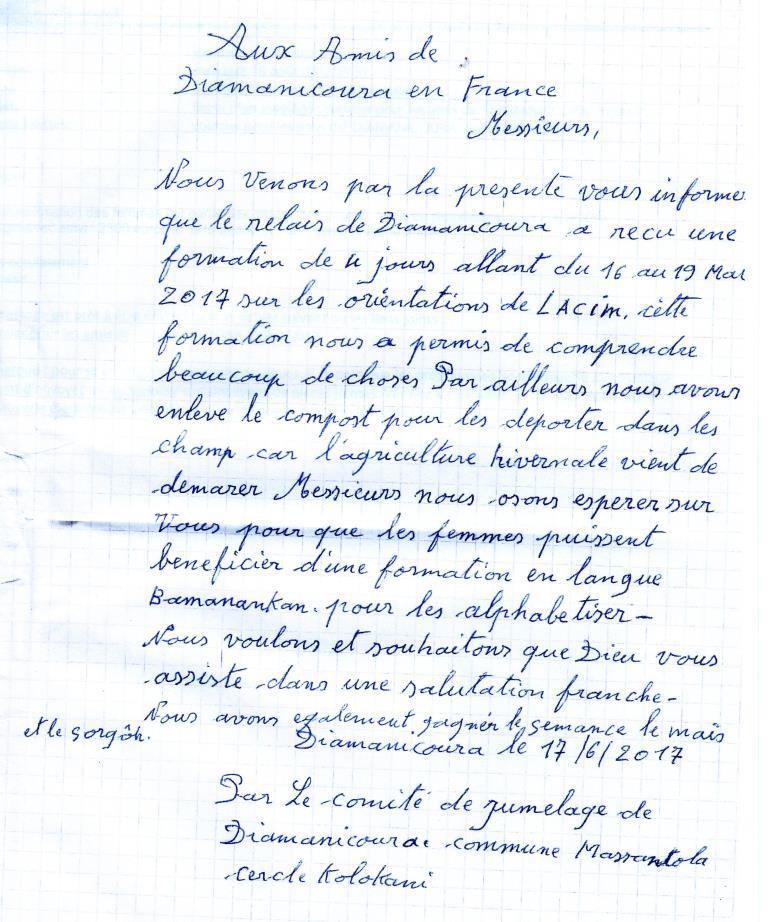 Aux Amis de
Diamanicoura en France
Messieurs,
Nous Venons par la presente vous informe
que le relais de Diamanicoura a recu une
formation de 4 jours allant du 16 au 19 Mai
2017 sur les orientations de LACim, cette
formation nous a permis de comprendre
beaucoup de choses Par ailleurs nous avons
enleve le compost pour les deporter dans les
champ car l'agriculture hivernale vient de
demarer Messieurs nous osons esperer sur
Vous pour que les femmes puissent
beneficier d'une formation en langue
Bamanankan. pour les alphabetiser-
Nous voulons et souhaitons que Dieu vous
assiste dans une salutation franche-
Nous avons egalement gagner le semance le maïs
et le sorgôh.
Diamanicoura le 17/6/2017
Par Le comité de jumelage de
Diamanicoura. commune Massantola
cercle Kolokani